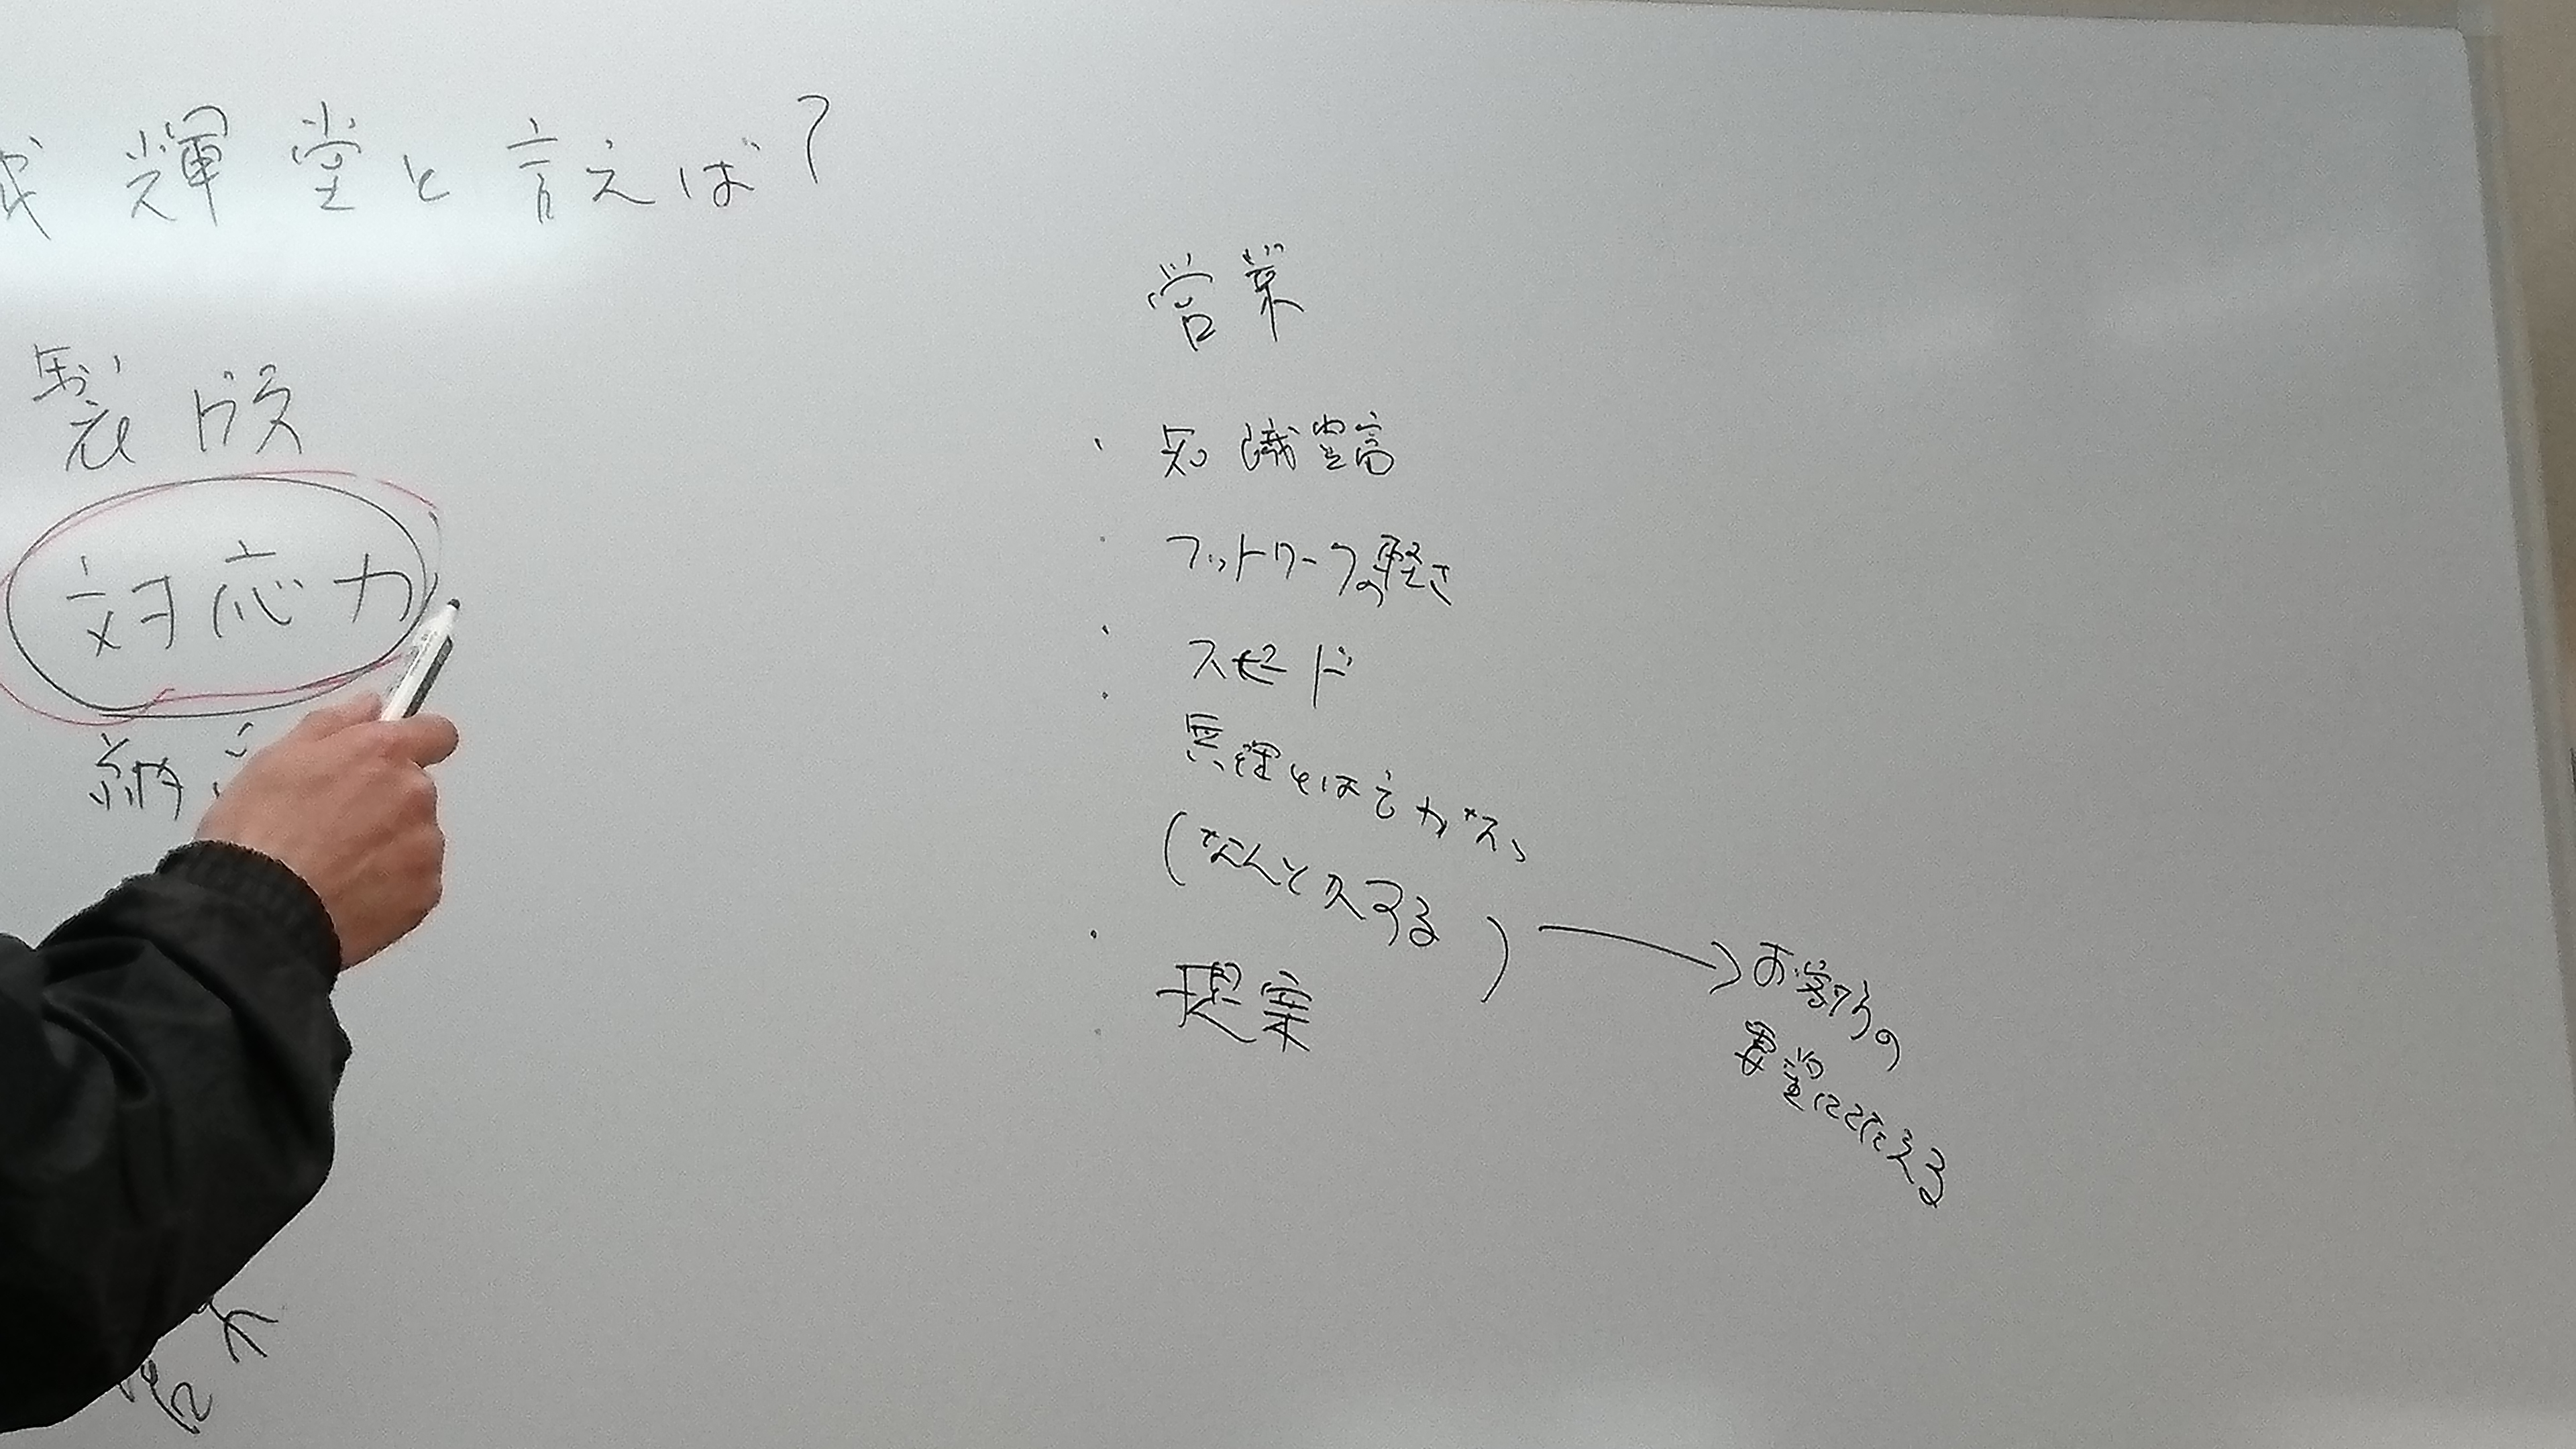 輝堂と言えば?
製版
対応力
納
営業
・知識豊富
・フットワークの軽さ
・スピード
・無理とは言わない
(なんとかする)→お客様の
要望にこたえる
・提案